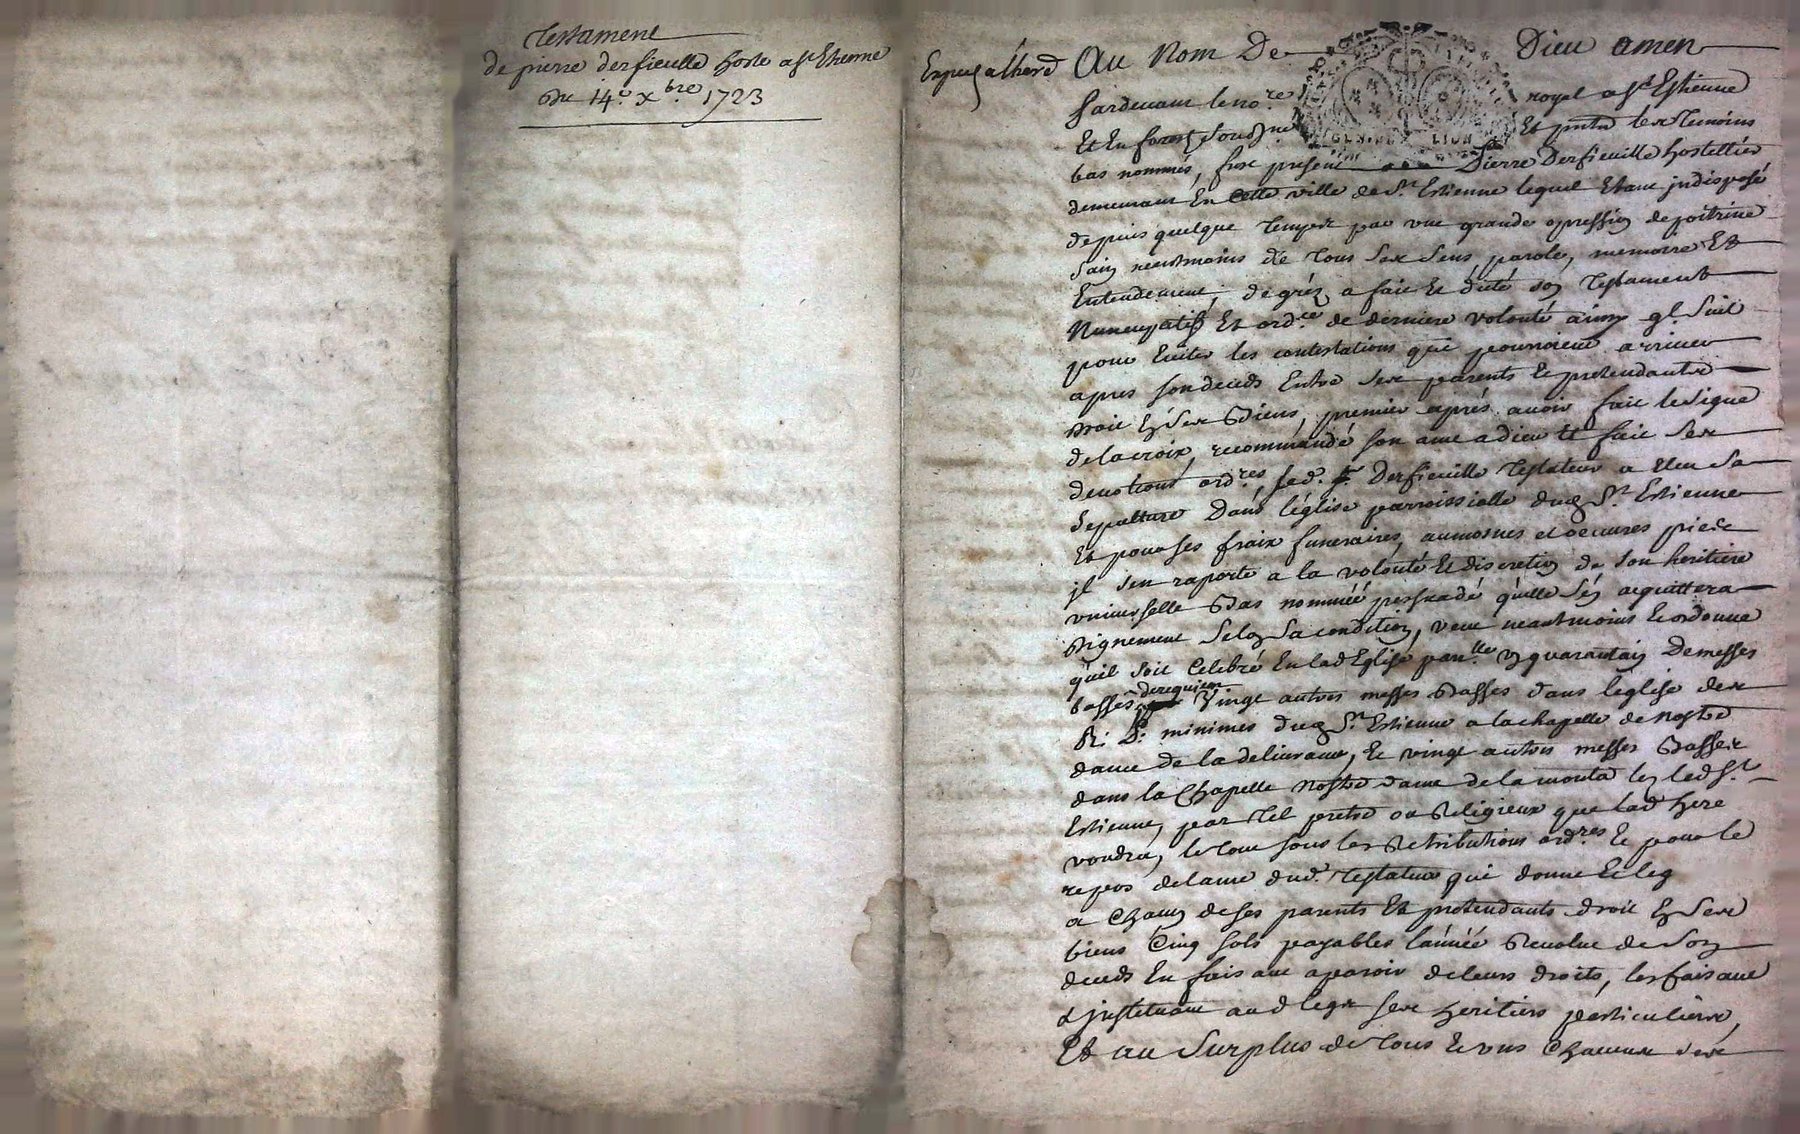 Testament
de pierre derfieuille hoste a st Etienne
du 14.e xbre 1723
Au Nom De Dieu amen
pardeuant le no.re royal a st Estienne
Et En forest soussigné Et pntn les Temoins
bas nommés, fut present Pierre Derfieuille hostellier
demeurant En Cette ville de st Estienne lequel Etant jndisposé
depuis quelque temps par vne grande opression de poitrine
sain neantmoins de tous ses sens, parole, memoire Et
Entendement, de gréz a fait Et dicté son Testament
Nuncupatif Et ord.ce de derniere volonté ainsy q.l suit
pour Euiter les contestations qui pourroient arriuer
apres son deceds Entre ses parents et pretendants
droit En ses Biens, premier aprés auoir fait le signe
de la croix, recommandé son ame a dieu Et fait ses
deuotions ord.res, led. Derfieuille Testateur a Eleu sa
sepulture Dans l'église parroissialle dud st Estienne
Et pour ses fraix funeraires, aumosnes et oeuures pies
jl s'en raporte a la volonté Et discretion de son heritiere
vniuerselle Bas nommée persuadé qu'elle s'en aquittera
Dignement selon sa condition, veut neantmoins Et ordonne
qu'il soit Celebré En lad Eglise par.lle vn quarantain De messes
basses de requiem Vingt autres messes Basses dans l'eglise des
R. P. minimes dud st Estienne a la chapelle de Nostre
dame de la deliurance, Et vingt autres messes Basses
dans la Chapelle Nostre dame de la monta lez led st
Estienne, par Tel pretre ou Religieux que lad here
voudra, le tout sous les Retributions ord.res Et pour le
repos de lame dud. Testateur qui donne Et leg
a Chacun de ses parents Et pretendants droit En ses
biens Cinq sols payables l'année Reuolue de son
deceds En faisant aparoir de leurs droits, les faisant
& jnstituant aud legs ses heritiers particuliers,
Et au surplus de tous Et vns Chacuns ses